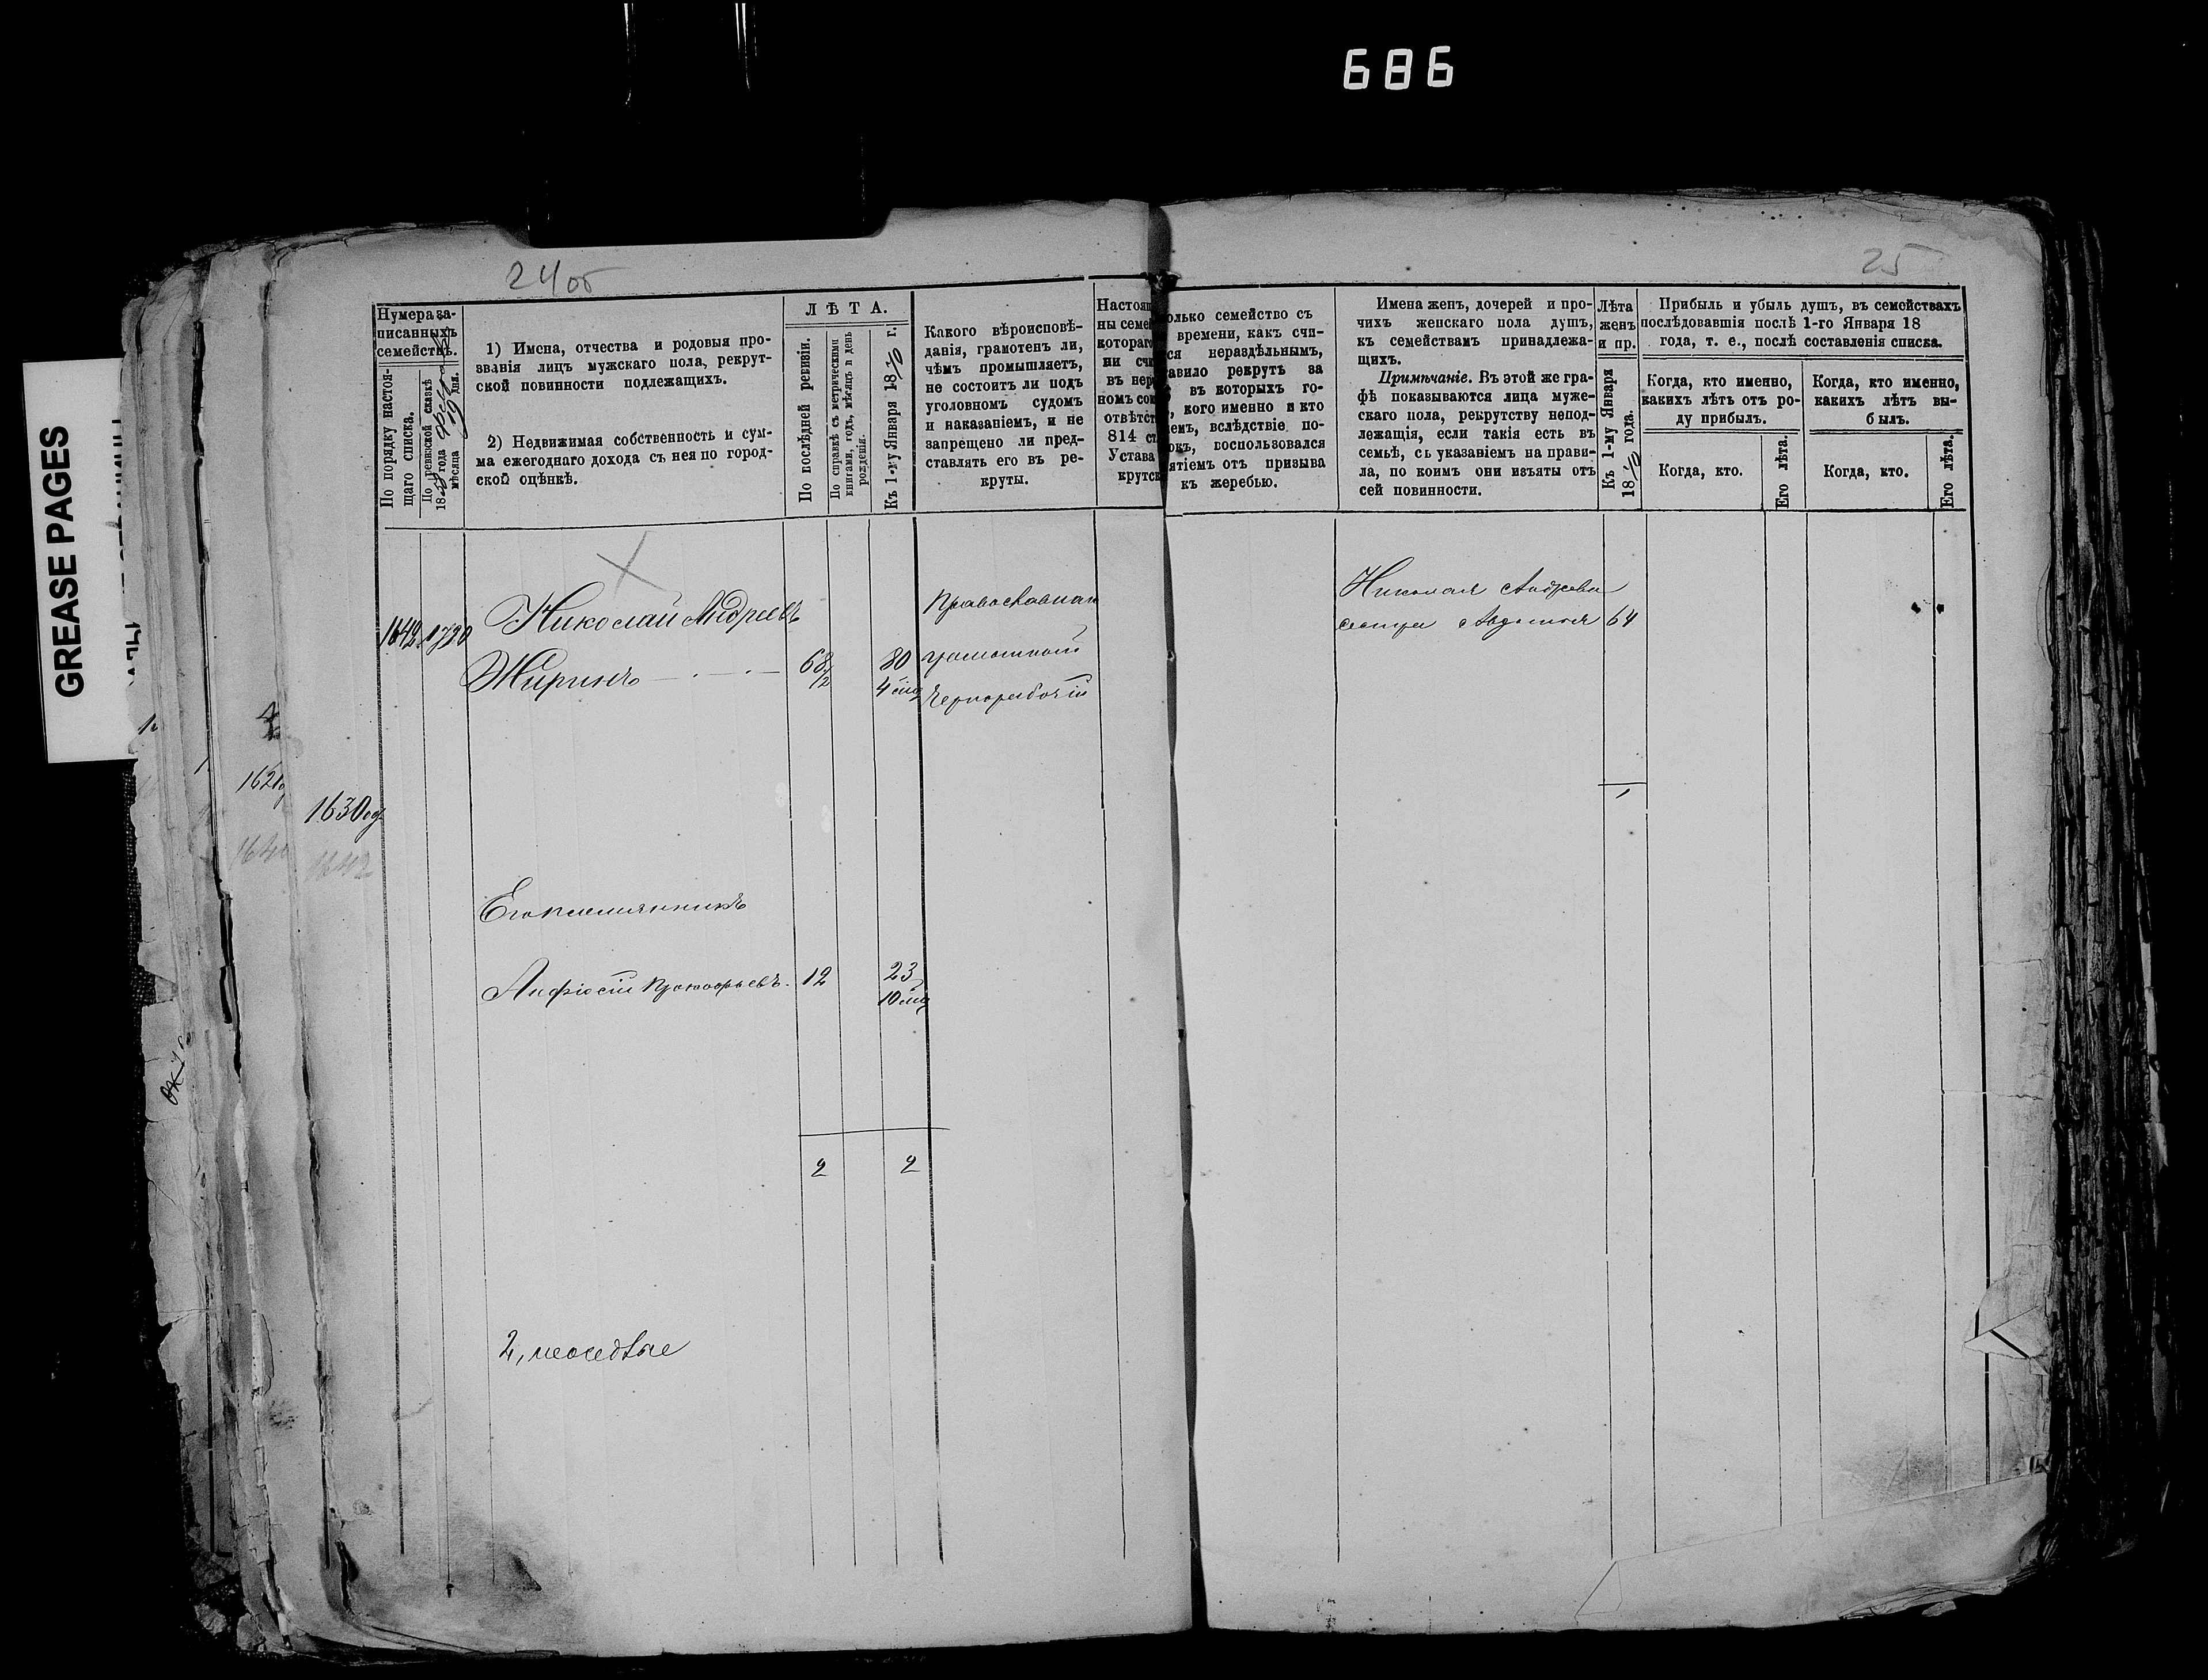 686
GREASE PAGES
24об
25
Нумера за-
писанныхъ
семействъ.
По порядку настоя-
щаго списка.
По ревизской сказкѣ
18 года
мѣсяца 19 дня.
1) Имена, отчества и родовыя про-
званія лицъ мужскаго пола, рекрут-
ской повинности подлежащихъ.
2) Недвижимая собственность и сум-
ма ежегоднаго дохода съ нея по город-
ской оцѣнкѣ.
ЛѢТА.
По послѣдней ревизіи.
По справкѣ съ метрическими
книгами, годъ, мѣсяцъ и день
рожденія.
Къ 1-му Января 1870 г.
Какого вѣроисповѣ-
данія, грамотенъ ли,
чѣмъ промышляетъ,
не состоитъ ли подъ
уголовномъ судомъ
и наказаніемъ, и не
запрещено ли пред-
ставлять его въ ре-
круты.
Настоящ
ны семей
котораго
ни счи
въ нер
номъ сос
отвѣтст
814 ст
Устава
крутск
олько семейство съ
времени, какъ счи-
ся нераздѣльнымъ,
авило рекрутъ за
въ которыхъ го-
, кого именно и кто
емъ, вслѣдствіе по-
окъ, воспользовался
ятіемъ отъ призыва
къ жеребью.
Имена женъ, дочерей и про-
чихъ женскаго пола душъ,
къ семействамъ принадлежа-
щихъ.
Примѣчаніе. Въ этой же гра-
фѣ показываются лица муже-
скаго пола, рекрутству непод-
лежащія, если такія есть въ
семьѣ, съ указаніемъ на прави-
ла, по коимъ они изъяты отъ
сей повинности.
Лѣта
женъ
и пр.
Къ 1-му Января
1870 года.
Прибыль и убыль душъ, въ семействахъ
послѣдовавшія послѣ 1-го Января 18
года, т. е., послѣ составленія списка.
Когда, кто именно,
какихъ лѣтъ отъ ро-
ду прибылъ.
Когда, кто.
Его лѣта.
Когда, кто именно,
какихъ лѣтъ вы-
былъ.
Когда, кто.
Его лѣта.
1642 1720
Николай Андреевъ
Жиринъ
68 1/2
80
4 мц
Православнаго
грамотной
Чернорабочій
Николая Андреева
сестра Авдотья 64
1
1621
1630
1642
Его племянникъ
Анфиосій Прокофьевъ. 12 23
10 мц
2 2
2,